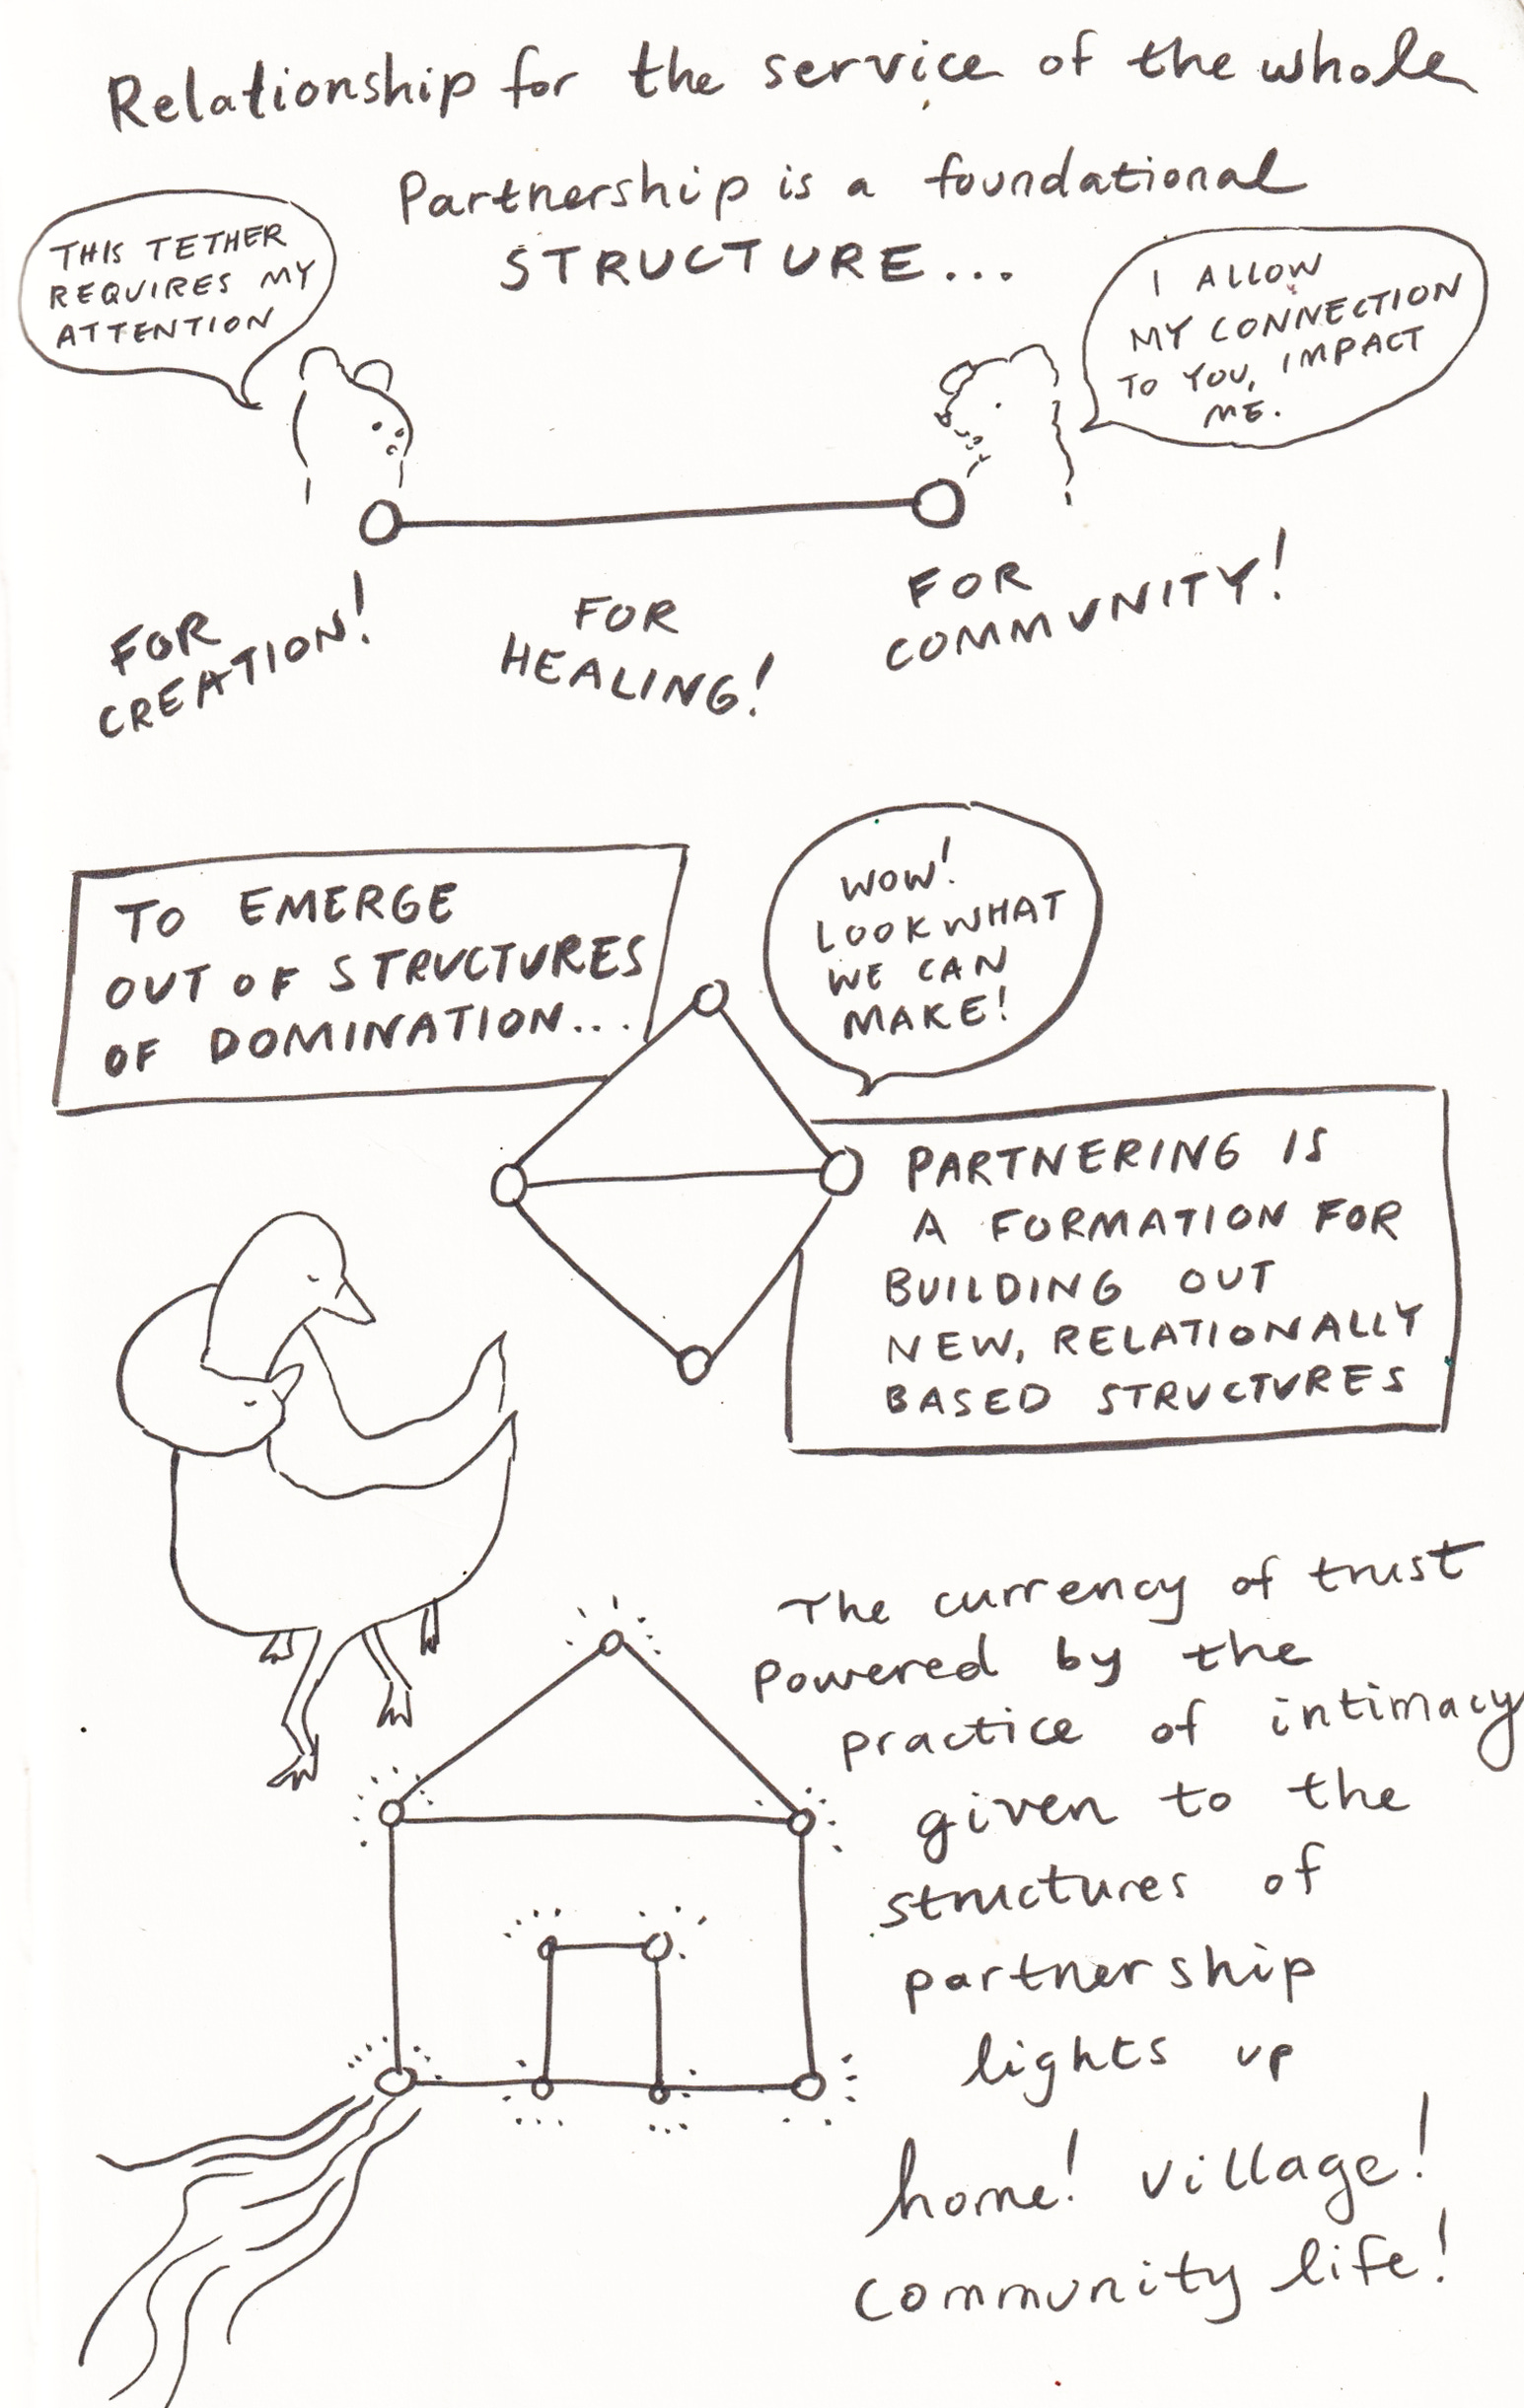 Relationship for the service of the whole
Partnership is a foundational
STRUCTURE...
THIS TETHER
REQUIRES MY
ATTENTION
I ALLOW
MY CONNECTION
TO YOU, IMPACT
ME.
FOR
CREATION!
FOR
HEALING!
FOR
COMMUNITY!
TO EMERGE
OUT OF STRUCTURES
OF DOMINATION...
WOW!
LOOK WHAT
WE CAN
MAKE!
PARTNERING IS
A FORMATION FOR
BUILDING OUT
NEW, RELATIONALLY
BASED STRUCTURES
The currency of trust
powered by the
practice of intimacy
given to the
structures of
partnership
lights up
home! village!
community life!